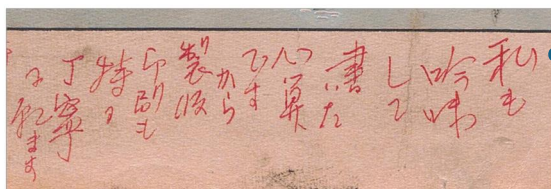 私も
吟味
して
書いた
心算
です
から
製版
印刷も
特に
丁寧
に願ます